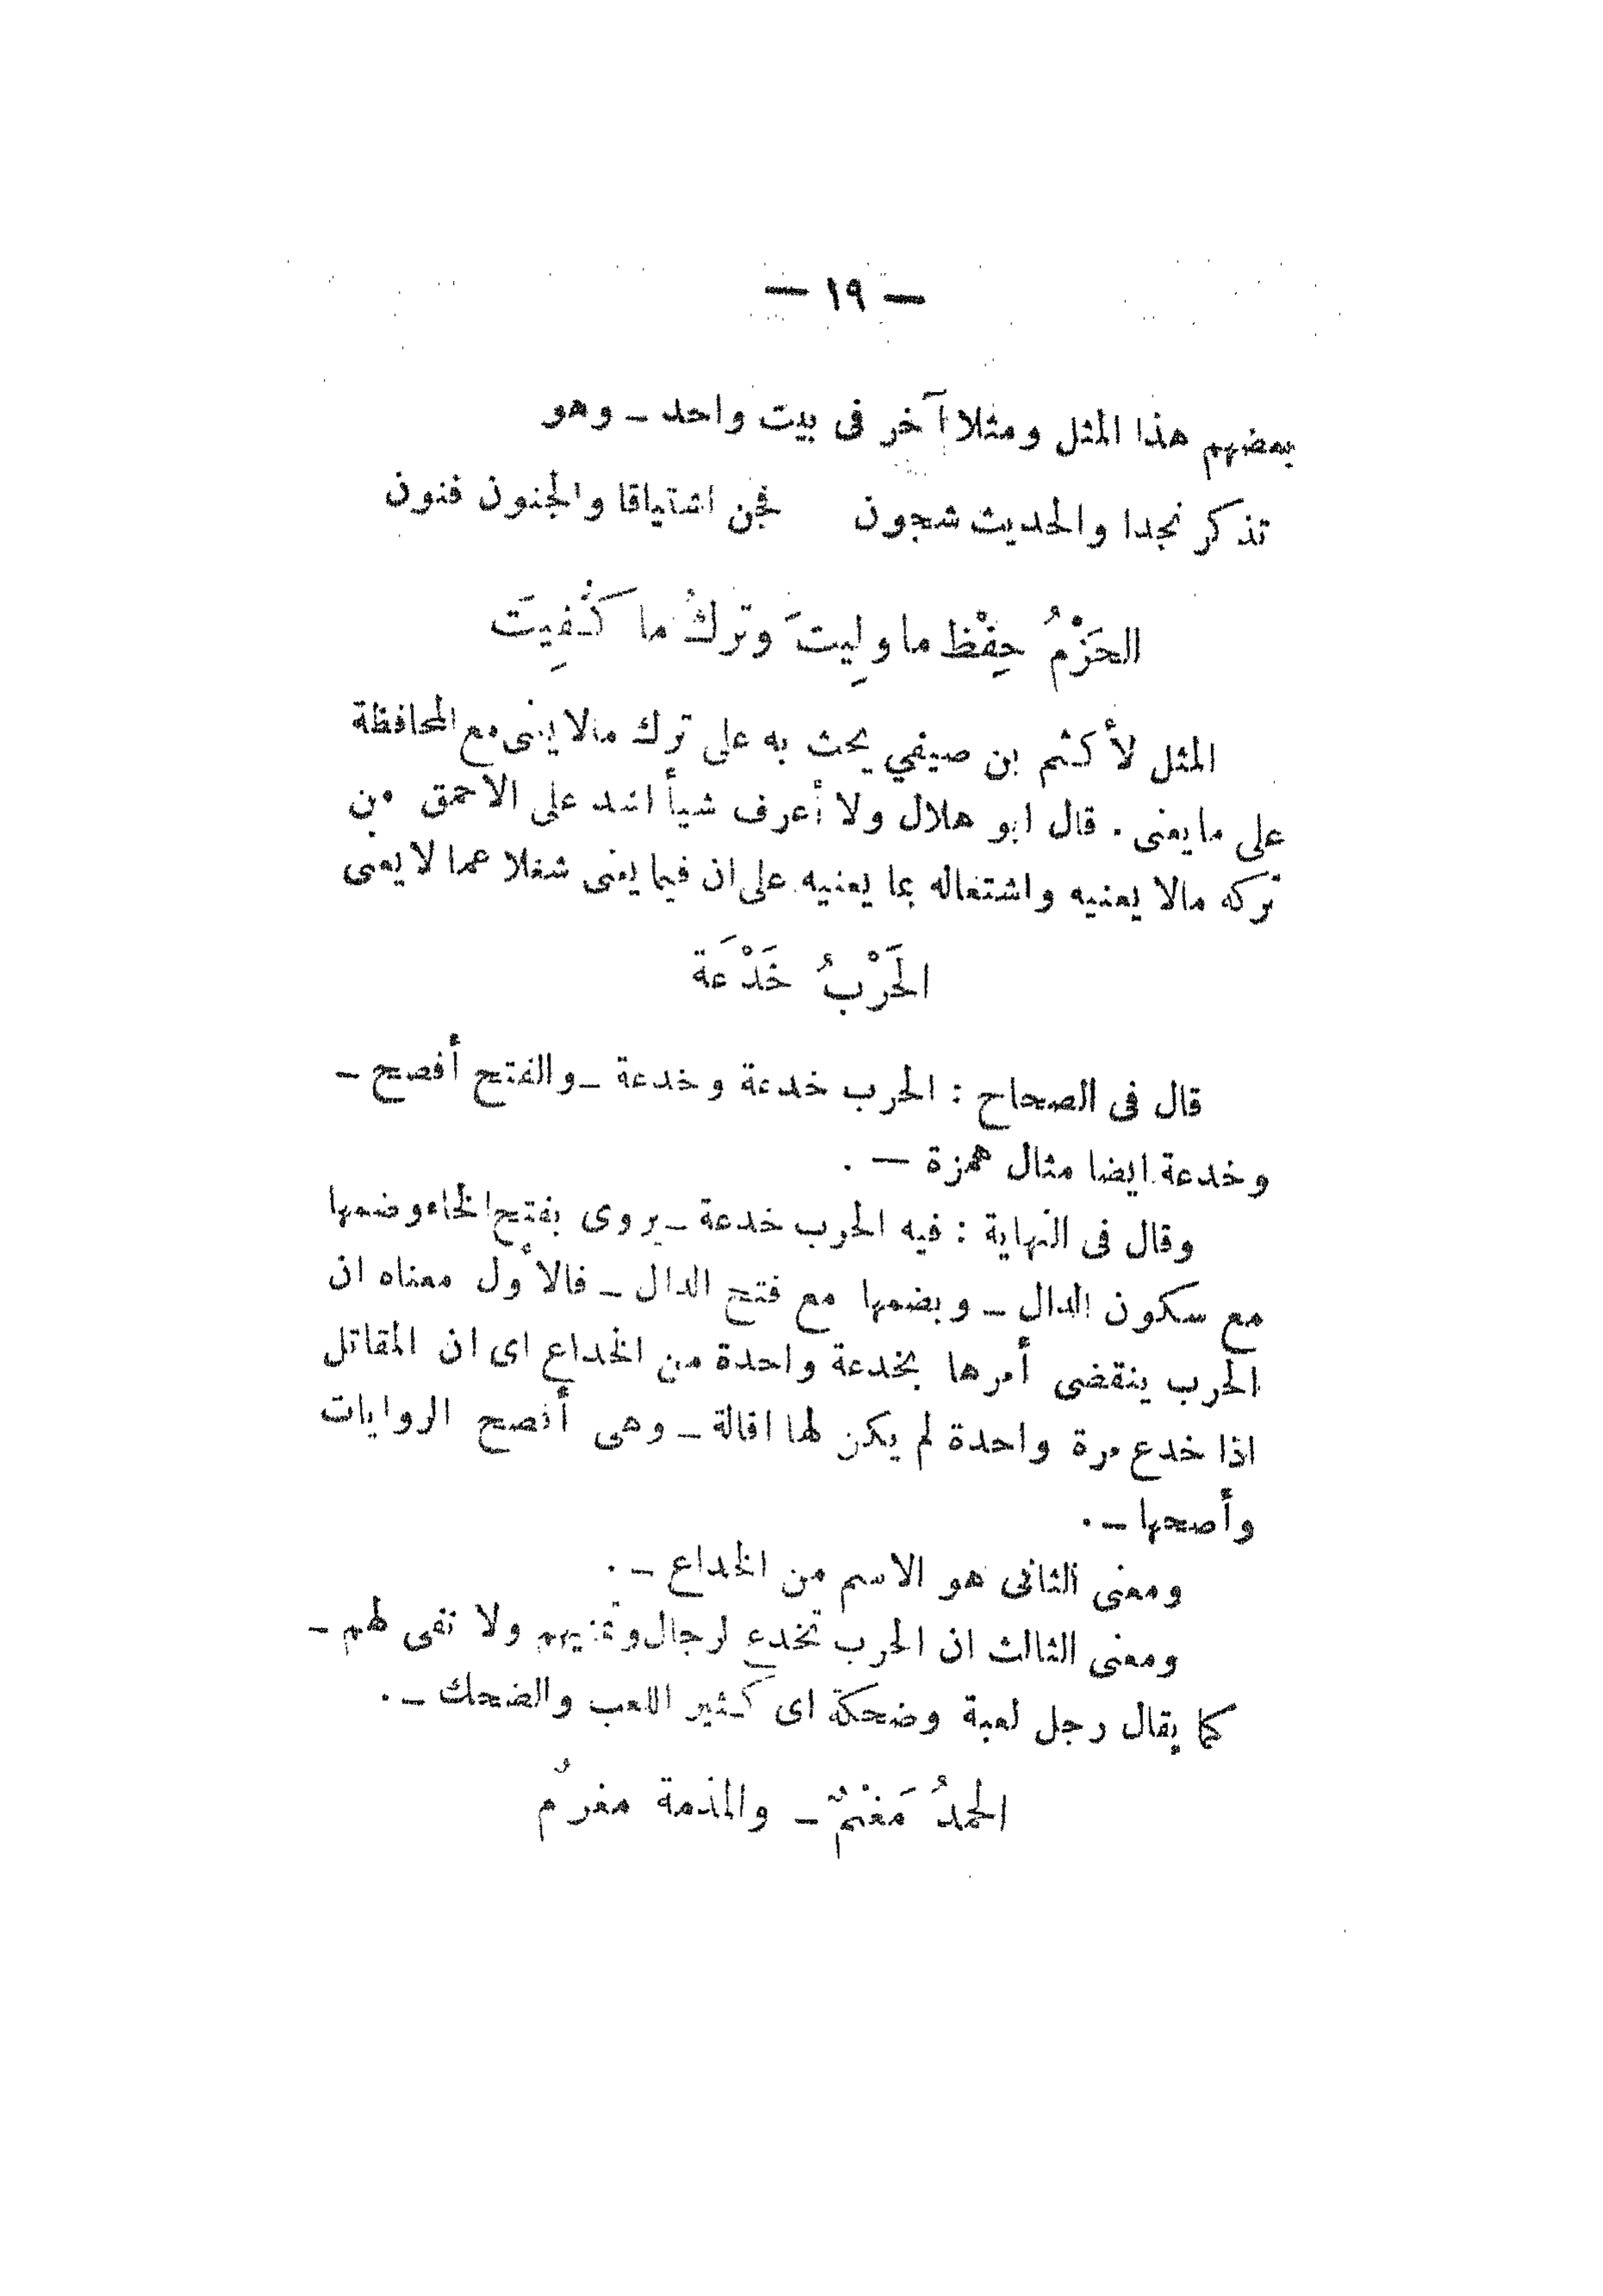 — ١٩ —
بعضهم هذا المثل ومثلا آخر فى بيت واحد ـ وهو
تذكر نجدا والحديث شجون فجن اشتياقا والجنون فنون
الحَزْمُ حِفْظ ما ولِيتَ وتركُ ما كُفِيتَ
المثل لأكثم بن صيفي يحث به على ترك مالا يعنى مع المحافظة
على ما يعنى . قال ابو هلال ولا أعرف شيأ اشد على الاحمق من
تركه مالا يعنيه واشتغاله بما يعنيه على ان فيما يعنى شغلا عما لا يعنى
الحَرْبُ خَدْعَة
قال فى الصحاح : الحرب خدعة وخدعة ـ والفتح أفصح ـ
وخدعة ايضا مثال همزة — .
وقال فى النهاية : فيه الحرب خدعة ـ يروى بفتح الخاء وضمها
مع سكون الدال ـ وبضمها مع فتح الدال ـ فالأول معناه ان
الحرب ينقضى أمرها بخدعة واحدة من الخداع اى ان المقاتل
اذا خدع مرة واحدة لم يكن لها اقالة ـ وهى أفصح الروايات
وأصحها ـ .
ومعنى الثانى هو الاسم من الخداع ـ .
ومعنى الثالث ان الحرب تخدع لرجال وتمنيهم ولا تفى لهم ـ
كما يقال رجل لعبة وضحكة اى كثير اللعب والضحك ـ .
الحمدُ مَغْنمٌ ـ والمذمة مغرمٌ